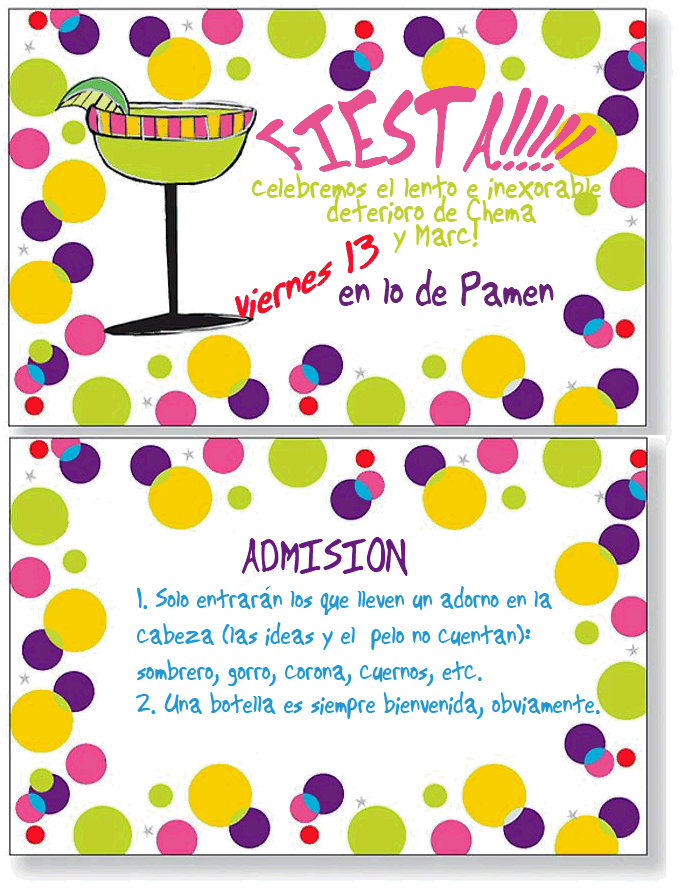 FIESTA!!!!!
Celebremos el lento e inexorable
deterioro de Chema
y Marc!
viernes 13
en lo de Pamen
ADMISION
1. Solo entrarán los que lleven un adorno en la
cabeza (las ideas y el pelo no cuentan):
sombrero, gorro, corona, cuernos, etc.
2. Una botella es siempre bienvenida, obviamente.